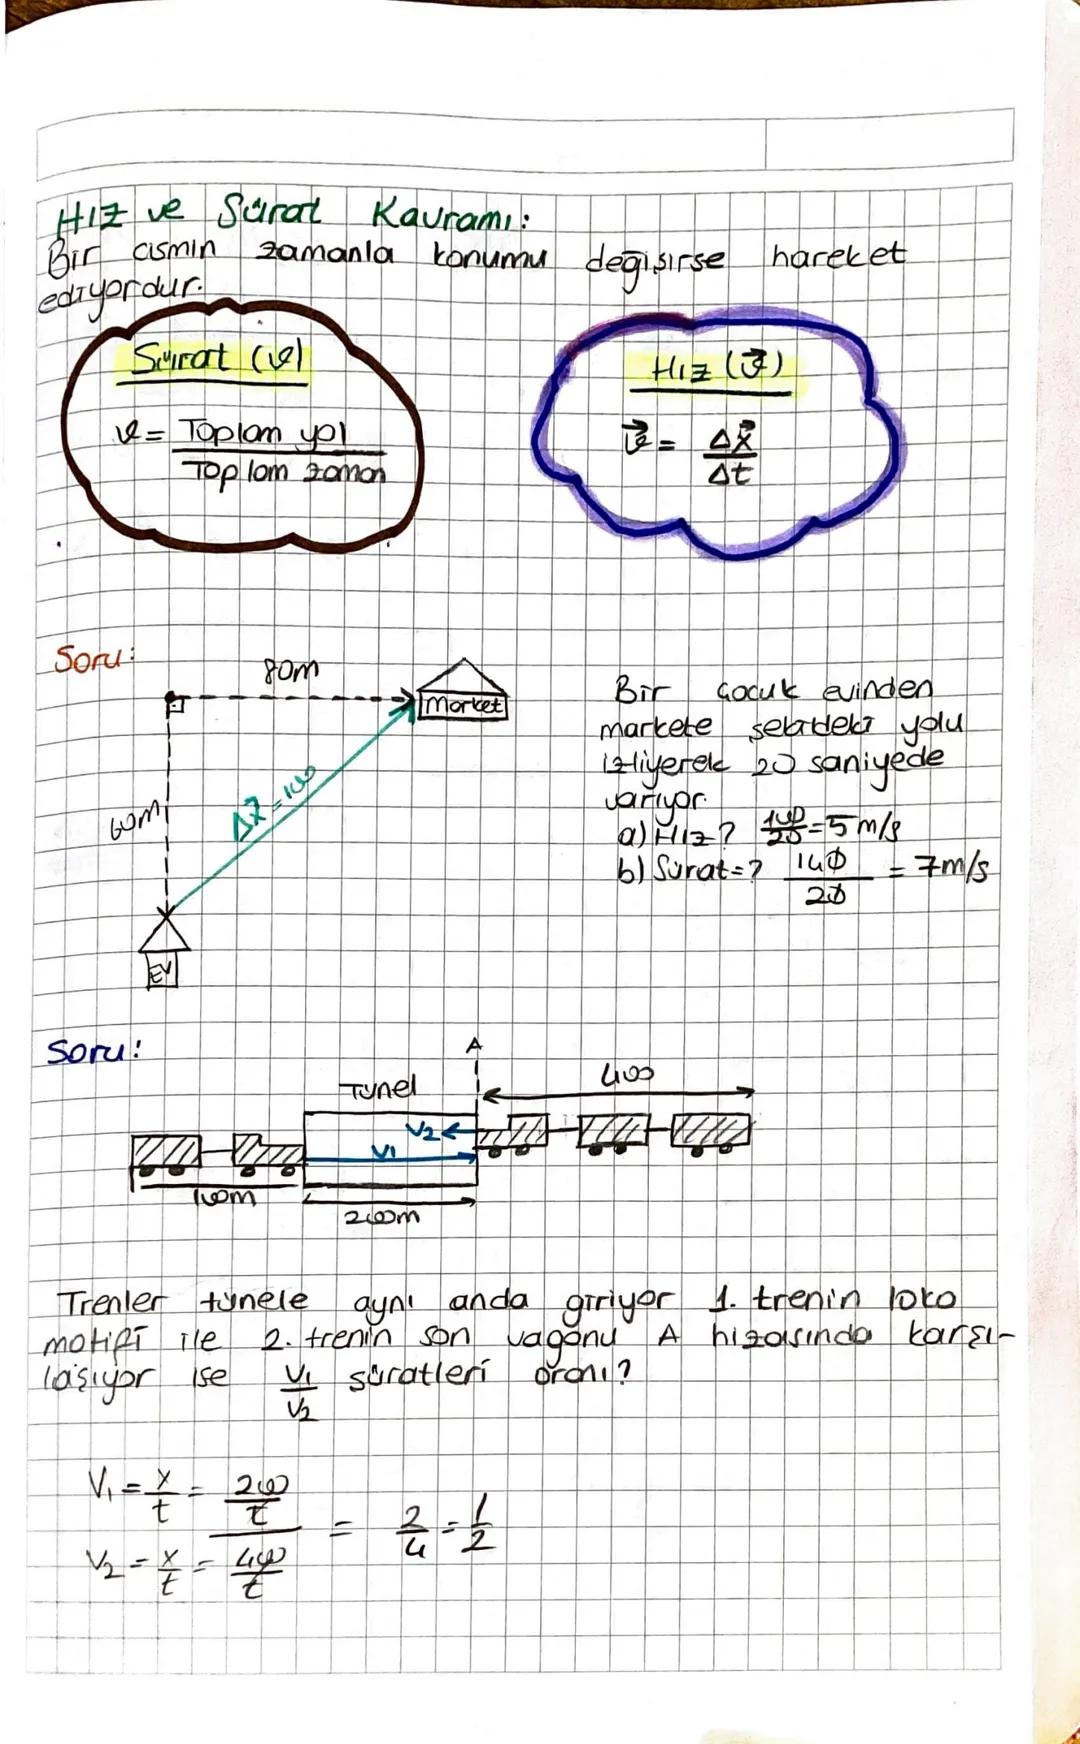 Hız ve Sürat Kavramı:
Bir cismin zamanla konumu değişirse hareket
ediyordur.
Sürat (v)
v = Toplam yol
Toplam zaman
Hız (v⃗)
v⃗ = Δx⃗
Δt
Soru:
80m
Market
60m
Δx⃗=100
EV
Bir çocuk evinden
markete şekildeki yolu
izliyerek 20 saniyede
varıyor.
a) Hız? 100/20=5m/s
b) Sürat=? 140/20 = 7m/s
Soru:
A
Tünel
400
V2
V1
100m
200m
Trenler tünele aynı anda giriyor 1. trenin loko
motifi ile 2. trenin son vagonu A hizasında karşı-
laşıyor ise V1/V2 süratleri oranı?
V1 = x/t = 200/t
= 2/4 = 1/2
V2 = x/t = 400/t